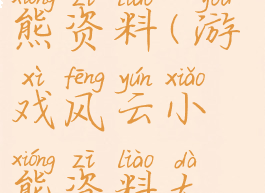 xióng zī liào yóu
熊资料(游
xì fēng yún xiǎo
戏风云小
xióng zī liào dà
熊资料大